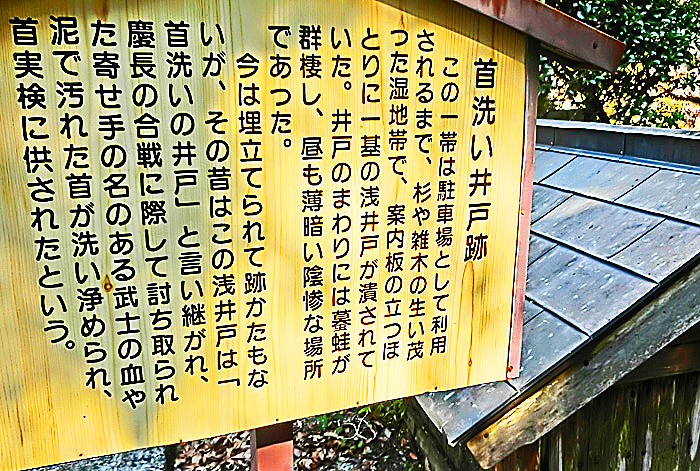 首洗い井戸跡
この一帯は駐車場として利用
されるまで、杉や雑木の生い茂
った湿地帯で、案内板の立つほ
とりに一基の浅井戸が潰されて
いた。井戸のまわりには蟇蛙が
群棲し、昼も薄暗い陰惨な場所
であった。
今は埋立てられて跡かたもな
いが、その昔はこの浅井戸は「
首洗いの井戸」と言い継がれ、
慶長の合戦に際して討ち取られ
た寄せ手の名のある武士の血や
泥で汚れた首が洗い浄められ、
首実検に供されたという。